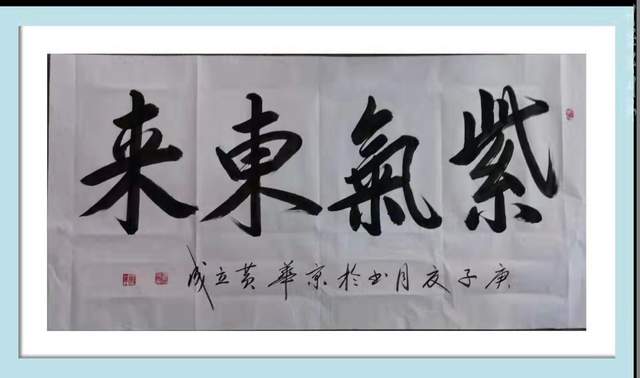 紫氣東来
庚子夏月书於京華黄立成